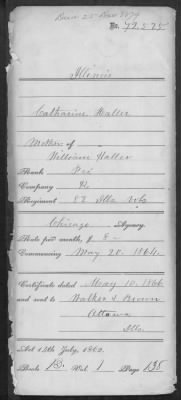 No. 72.525
Illinois
Catharine Haller
Mother of
William Haller
Rank Pri
Company
Regiment 88 Ills Vols
Chicago Agency.
Rate per month, $ 8 —
Commencing May 20. 1864.
Certificate dated May 10. 1866
and sent to Walker & Brown
Ottawa
Ills.
Act 14th July, 1862.
Book B. Vol. 1 Page 135